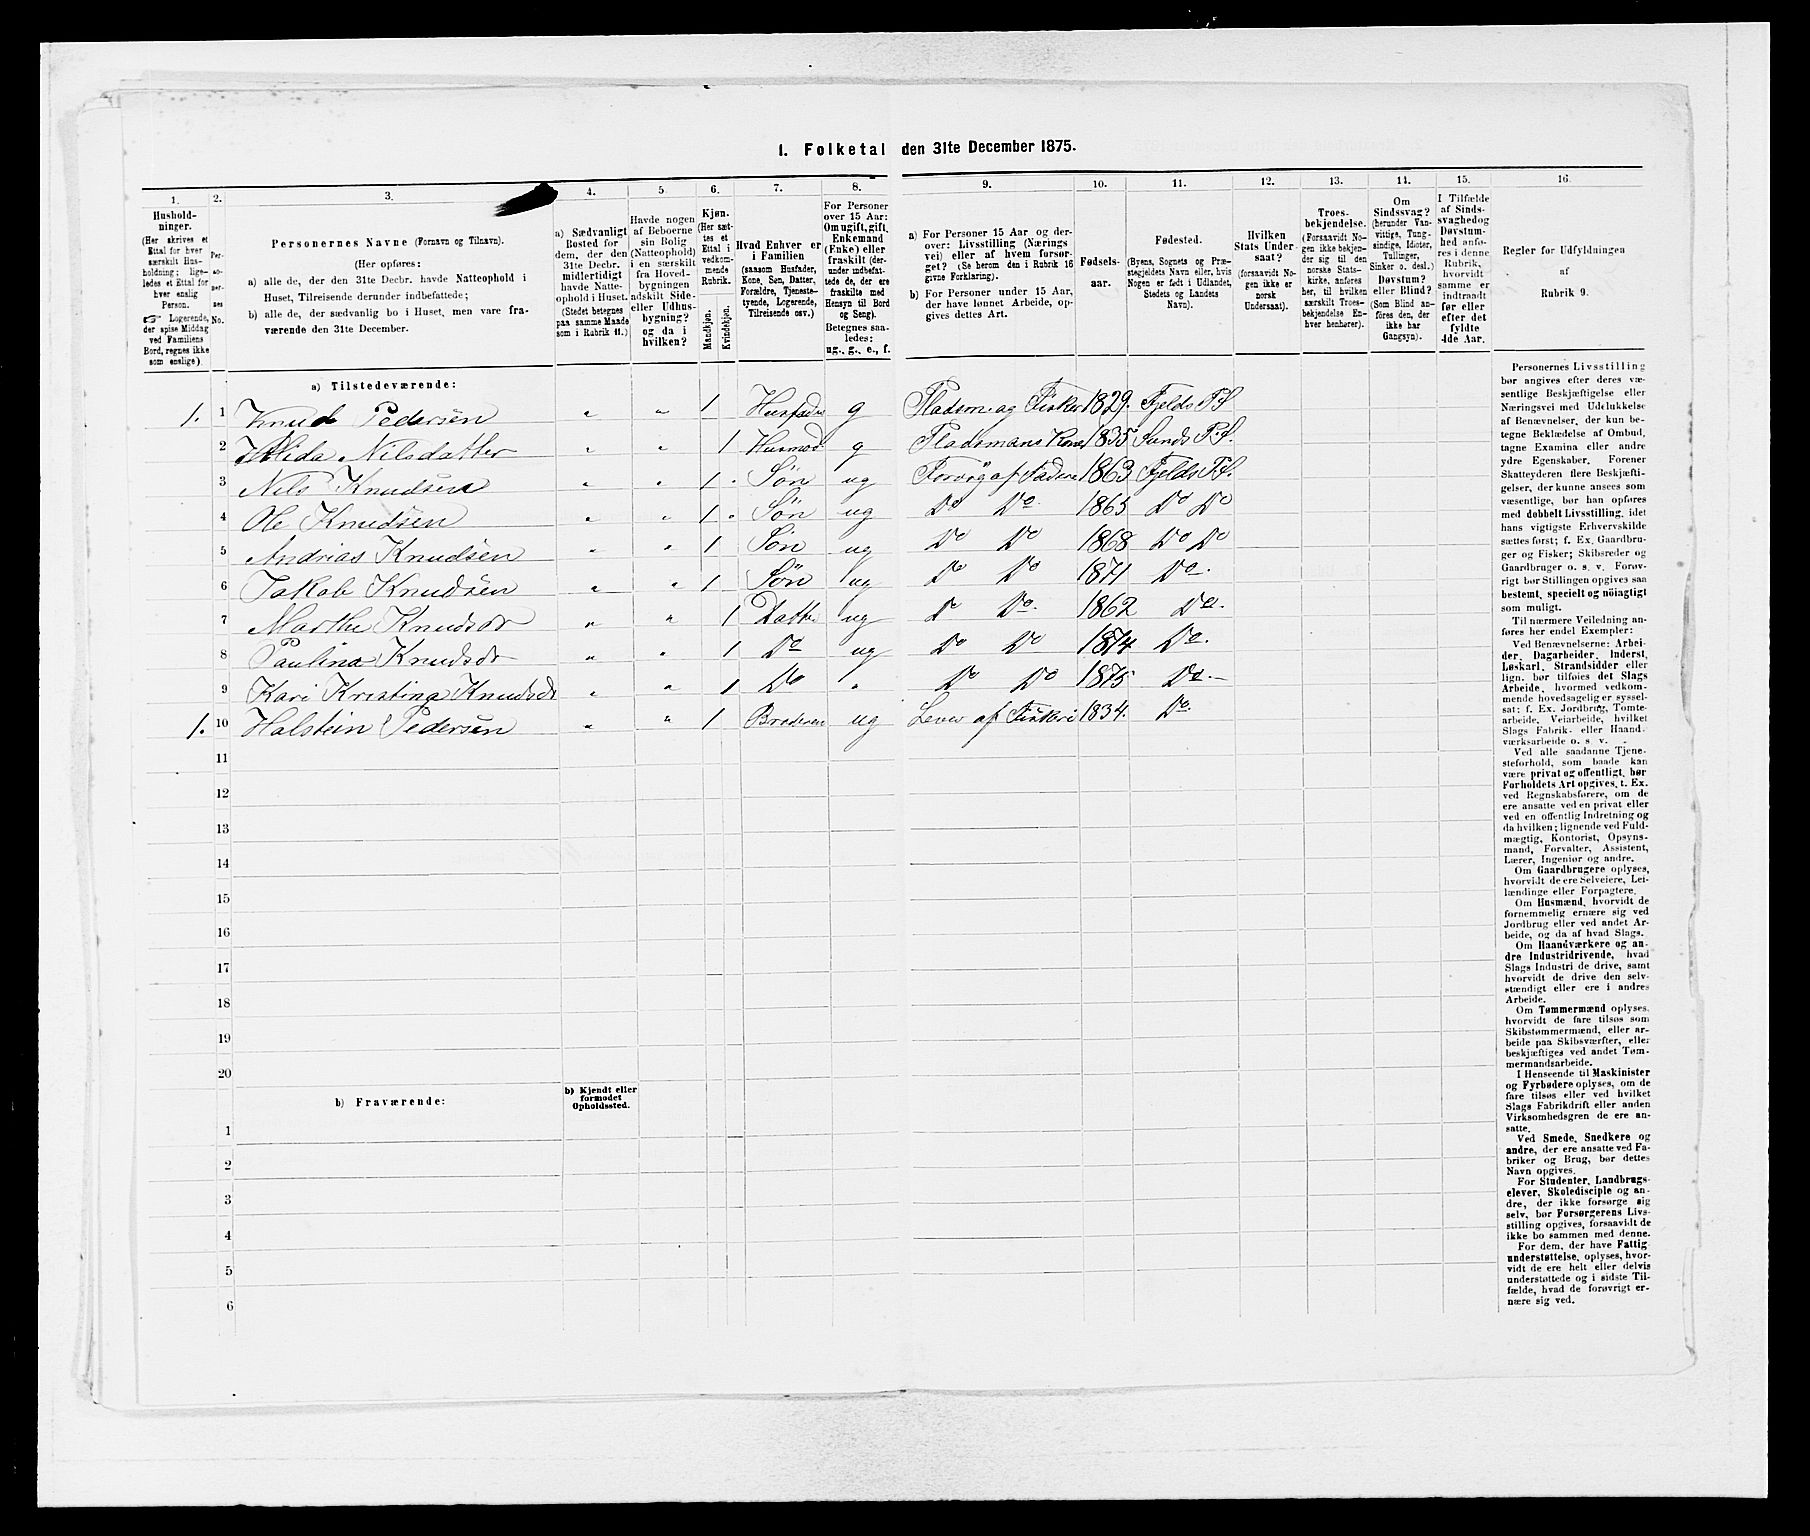 1. Folketal den 31te December 1875.
1. 2. 3. 4. 5. 6. 7. 8. 9. 10. 11. 12. 13. 14. 15. 16.
Hushold-
ninger.
(Her skrives et
Ettal for hver
særskilt Hus-
holdning; lige-
ledes et Ettal for
hver enslig
Person.
☞ Logerende,
der spise Middag
ved Familiens
Bord, regnes ikke
som enslige).
Per-
so-
ner-
nes
No.
Personernes Navne (Fornavn og Tilnavn).
(Her opføres:
a) alle de, der den 31te Decbr. havde Natteophold i
Huset, Tilreisende derunder indbefattede;
b) alle de, der sædvanlig bo i Huset, men vare fra-
værende den 31te December.
a) Sædvanligt
Bosted for
dem, der den
31te Decbr.
midlertidigt
havde Natte-
ophold i Huset.
(Stedet betegnes
paa samme Maade
som i Rubrik 11.)
Havde nogen
af Beboerne
sin Bolig
(Natteophold)
i en særskilt
fra Hoved-
bygningen
adskilt Side-
eller Udhus-
bygning?
og da i
hvilken?
Kjøn.
(Her sæt-
tes et
Ettal i
vedkom-
mende
Rubrik.
Mandkjøn.
Kvindekjøn.
Hvad Enhver er
i Familien
(saasom Husfader,
Kone, Søn, Datter,
Forældre, Tjeneste-
tyende, Logerende,
Tilreisende osv.)
For Personer
over 15 Aar:
Om ugift, gift,
Enkemand
(Enke) eller
fraskilt (der-
under indbefat-
tede de, der ere
fraskilte med
Hensyn til Bord
og Seng).
Betegnes saa-
ledes:
ug., g., e., f.
a) For Personer 15 Aar og der-
over: Livsstilling (Nærings
vei) eller af hvem forsør-
get? (Se herom den i Rubrik 16
givne Forklaring).
b) For Personer under 15 Aar,
der have lønnet Arbeide, op-
gives dettes Art.
Fødsels-
aar.
Fødested.
(Byens, Sognets og Præ-
stegjeldets Navn eller, hvis
Nogen er født i Udlandet,
Stedets og Landets
Navn).
Hvilken
Stats Under-
saat?
(forsaavidt No-
gen ikke er
norsk
Undersaat).
Troes-
bekjendelse.
(Forsaavidt No-
gen ikke bekjen-
der sig til den
norske Stats-
kirke, anføres
her, til hvilken
særskilt Troes-
bekjendelse En-
hver henhører).
Om
Sindssvag?
(herunder Van-
vittige, Tung-
sindige, Idioter,
Tullinger,
Sinker o. desl.)
Døvstum?
eller Blind?
(Som Blind an-
føres den, der
ikke har
Gangsyn).
I Tilfælde
af Sinds-
svaghed og
Døvstum-
hed anfø-
res i denne
Rubrik,
hvorvidt
samme er
indtraadt
før eller
efter det
fyldte
4de Aar.
Regler for Udfyldningen
af
Rubrik 9.
a) Tilstedeværende:
1. 1 Knud Pedersen „ „ 1 Husfader g Pladsm. og Fisker 1829. Fjelds Pf
2 Nilsdatter „ „ 1 Husmod g Pladsmans Kone 1835 Sunds P.f.
3 Nils Knudsen „ „ 1 Søn ug Forsørg af Faderen 1863 Fjelds Pf.
4 Ole Knudsen „ „ 1 Søn ug Do Do 1865 Do Do
5 Andrias Knudsen „ „ 1 Søn ug Do Do 1868 Do Do
6 Jakob Knudsen „ „ 1 Søn ug Do Do 1871 Do.
7 Marthe Knudsdr „ „ 1 Datter ug Do Do. 1862 Do.
8 Paulina Knudsdr „ „ 1 Do ug Do Do 1874 Do.
9 Kari Kristina Knudsdr „ „ 1 Do „ Do Do 1875 Do.
1. 10 Halstein Pedersen „ „ 1 Broderen ug Lever af Fiskeri 1834. Do.
11
12
13
14
15
16
17
18
19
20
b) Fraværende:
b) Kjendt eller
formodet
Opholdssted.
1
2
3
4
5
6
Personernes Livsstilling
bør angives efter deres væ-
sentlige Beskjæftigelse eller
Næringsvei med Udelukkelse
af Benævnelser, der kun be-
tegne Beklædelse af Ombud,
tagne Examina eller andre
ydre Egenskaber. Forener
Skatteyderen flere Beskjæfti-
gelser, der kunne ansees som
væsentlige, bør han opføres
med dobbelt Livsstilling, idet
hans vigtigste Erhvervskilde
sættes først; f. Ex. Gaardbru-
ger og Fisker; Skibsreder og
Gaardbruger o. s. v. Forøv-
rigt bør Stillingen opgives saa
bestemt, specielt og nöiagtigt
som muligt.
Til nærmere Veiledning an-
føres her endel Exempler:
Ved Benævnelserne: Arbei-
der, Dagarbeider, Inderst,
Løskarl, Strandsidder eller
lign. bør tilføies det Slags
Arbeide, hvormed vedkom-
mende hovedsagelig er syssel-
sat; f. Ex. Jordbrug, Tomte-
arbeide, Veiarbeide, hvilket
Slags Fabrik- eller Haand-
værksarbeide o. s. v.
Ved alle saadanne Tjene-
steforhold, som baade kan
være privat og offentligt, bør
Forholdets Art opgives, t. Ex.
ved Regnskabsførere, om de
ere ansatte ved en privat eller
ved en offentlig Indretning og
da hvilken; lignende ved Fuld-
mægtig, Kontorist, Opsyns-
mand, Forvalter, Assistent,
Lærer, Ingeniør og andre.
Om Gaardbrugere oplyses,
hvorvidt de ere Selveiere, Lei-
lændinge eller Forpagtere.
Om Husmænd, hvorvidt de
fornemmelig ernære sig ved
Jordbrug eller ved andet Ar-
beide, og da af hvad Slags.
Om Haandværkere og an-
dre Industridrivende, hvad
Slags Industri de drive, samt
hvorvidt de drive den selv-
stændigt eller ere i andres
Arbeide.
Om Tømmermænd oplyses,
hvorvidt de fare tilsøs som
Skibstømmermænd, eller ar-
beide paa Skibsværfter, eller
beskjæftiges ved andet Tøm-
mermandsarbeide.
I Henseende til Maskinister
og Fyrbødere oplyses, om de
fare tilsøs eller ved hvilket
Slags Fabrikdrift eller anden
Virksomhedsgren de ere an-
satte.
Ved Smede, Snedkere og
andre, der ere ansatte ved Fa-
briker og Brug, bør dettes
Navn opgives.
For Studenter, Landbrugs-
elever, Skoledisciple og an-
dre, der ikke forsørge sig
selv, bør Forsørgerens Livs-
stilling opgives, forsaavidt de
ikke bo sammen med denne.
For dem, der have Fattig-
understøttelse, oplyses, hvor-
vidt de ere helt eller delvis
understøttede og i sidste Til-
fælde, hvad de forøvrigt er-
nære sig ved.